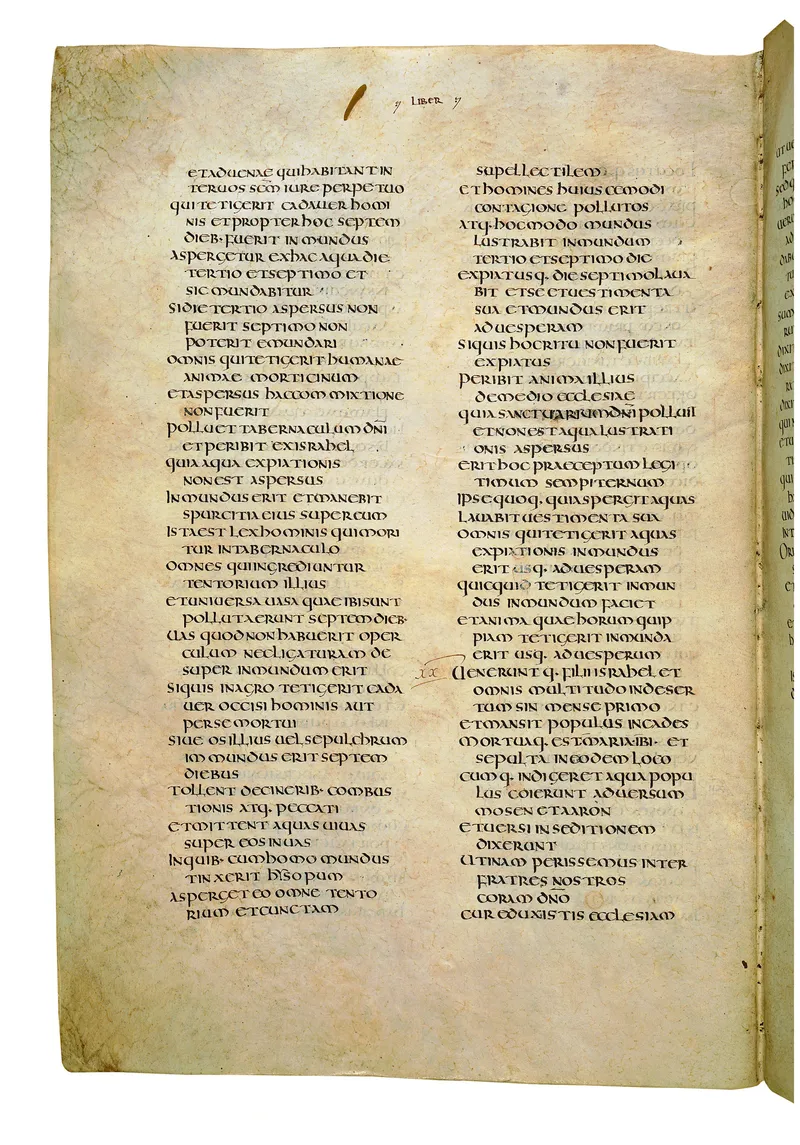 LIBER
ETADUENAE QUIHABITANTIN
TERUOS SEM̅ IURE PERPETUO
QUITETIGERIT CADAUER HOMI
NIS ETPROPTERHOC SEPTEM
DIEB· FUERIT INMUNDUS
ASPERGETUR EXHACAQUA DIE
TERTIO ETSEPTIMO ET
SICMUNDABITUR
SIDIETERTIO ASPERSUS NON
FUERIT SEPTIMO NON
POTERIT EMUNDARI
OMNIS QUITETIGERIT HUMANAE
ANIMAE MORTICINUM
ETASPERSUS HACCOMMIXTIONE
NONFUERIT
POLLUET TABERNACULUM DN̅I
ETPERIBIT EXISRAHEL
QUIA AQUA EXPIATIONIS
NONEST ASPERSUS
INMUNDUS ERIT ETMANEBIT
SPURCITIA EIUS SUPEREUM
ISTAEST LEXHOMINIS QUIMORI
TUR INTABERNACULO
OMNES QUIINGREDIUNTUR
TENTORIUM ILLIUS
ETUNIUERSA UASA QUAEIBISUNT
POLLUTAERUNT SEPTEMDIEB·
UAS QUODNONHABUERIT OPER
CULUM NECLIGATURAM DE
SUPER INMUNDUM ERIT
SIQUIS INAGRO TETIGERIT CADA
UER OCCISI HOMINIS AUT
PERSEMORTUI
SIUE OSILLIUS UELSEPULCHRUM
IMMUNDUS ERITSEPTEM
DIEBUS
TOLLENT DECINERIB· COMBUS
TIONIS ATQ. PECCATI
ETMITTENT AQUAS UIUAS
SUPER EOS INUAS
INQUIB· CUMHOMO MUNDUS
TINXERIT HYSOPUM
ASPERGET EO OMNE TENTO
RIUM ETCUNCTAM
SUPELLECTILEM
ETHOMINES HUIUSCEMODI
CONTAGIONE POLLUTOS
ATQ. HOCMODO MUNDUS
LUSTRABIT INMUNDUM
TERTIO ETSEPTIMO DIE
EXPIATUSQ. DIESEPTIMOLAUA
BIT ETSE ETUESTIMENTA
SUA ETMUNDUS ERIT
ADUESPERAM
SIQUIS HOCRITU NONFUERIT
EXPIATUS
PERIBIT ANIMAILLIUS
DEMEDIO ECCLESIAE
QUIA SANCTUARIUMDN̅I POLLUIT
ETNONEST AQUALUSTRATI
ONIS ASPERSUS
ERITHOC PRAECEPTUM LEGI
TIMUM SEMPITERNUM
IPSEQUOQ. QUIASPERGITAQUAS
LAUABIT UESTIMENTA SUA
OMNIS QUITETIGERIT AQUAS
EXPIATIONIS INMUNDUS
ERIT USQ. ADUESPERAM
QUICQUID TETIGERIT INMUN
DUS INMUNDUM FACIET
ETANIMA QUAEHORUM QUIP
PIAM TETIGERIT INMUNDA
ERIT USQ. ADUESPERUM
XX UENERUNTQ. FILIIISRAHEL ET
OMNIS MULTITUDO INDESER
TUMSIN MENSE PRIMO
ETMANSIT POPULUS INCADES
MORTUAQ. ESTMARIA·IBI· ET
SEPULTA INEODEM LOCO
CUMQ. INDIGERET AQUA POPU
LUS COIERUNT ADUERSUM
MOSEN ETAARON
ETUERSI INSEDITIONEM
DIXERUNT
UTINAM PERISSEMUS INTER
FRATRES NOSTROS
CORAM DN̅O
CUREDUXISTIS ECCLESIAM